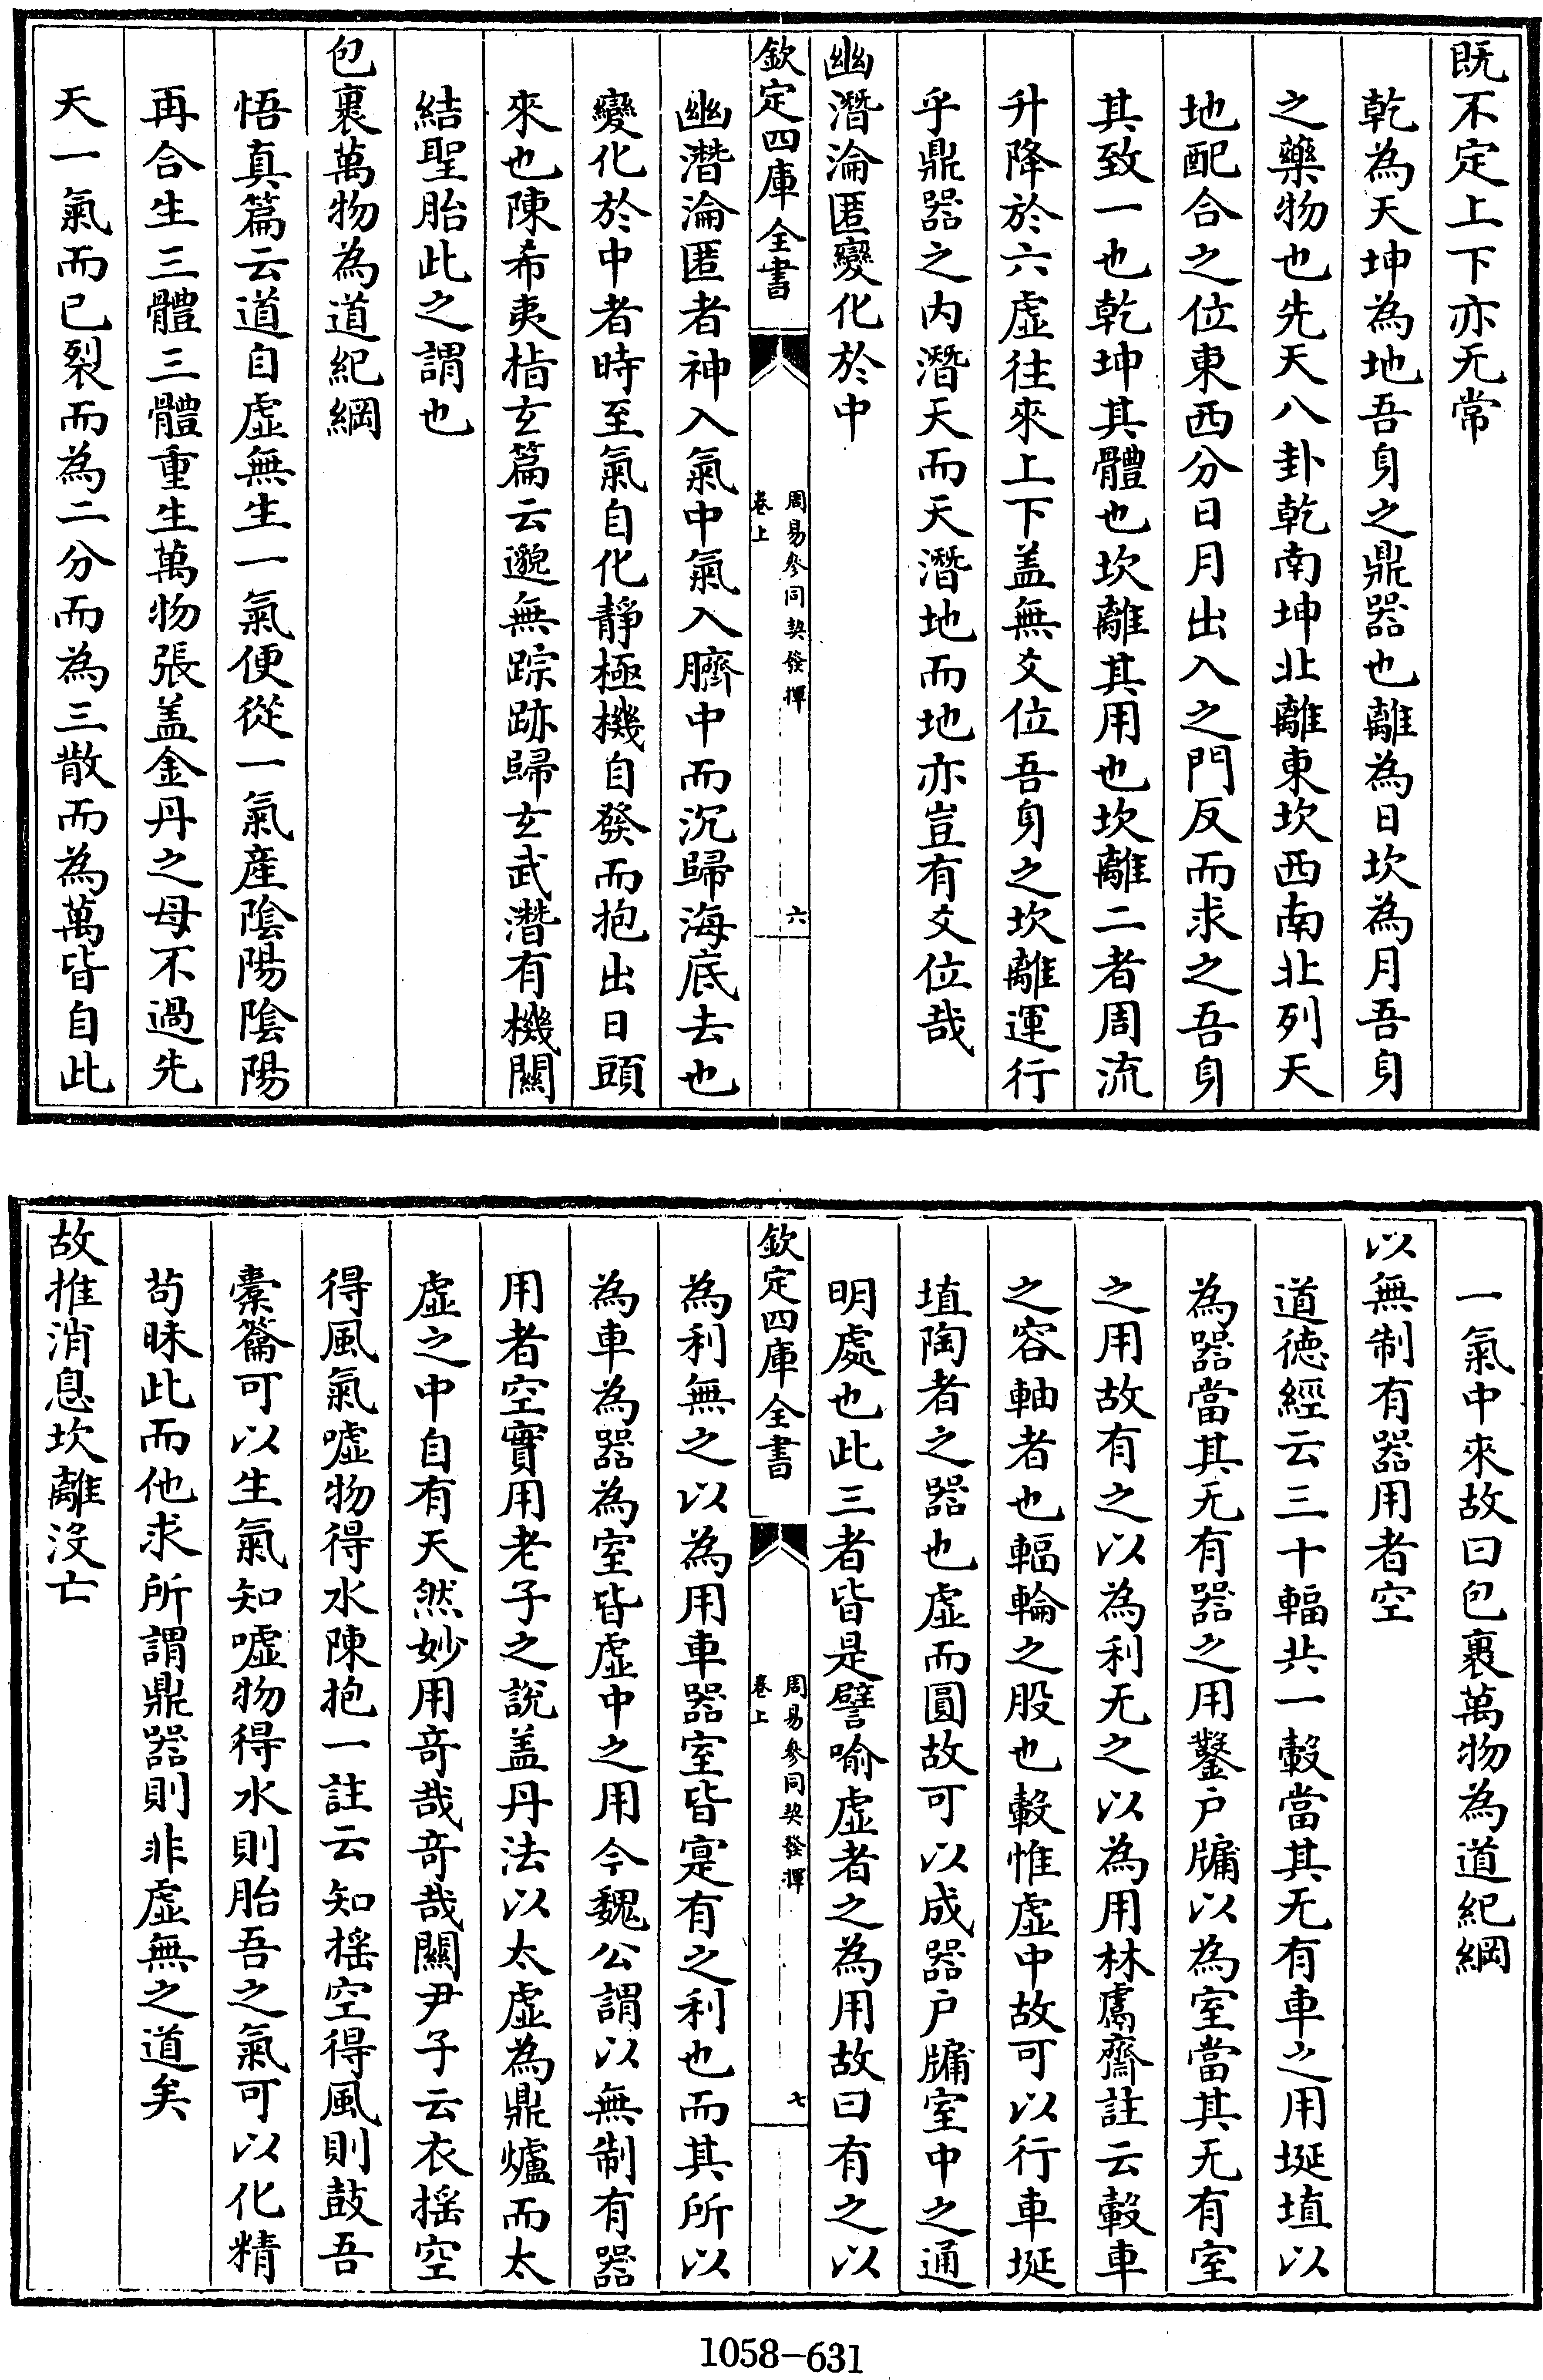 既不定上下亦无常
乾為天坤為地吾身之鼎器也離為日坎為月吾身
之藥物也先天八卦乾南坤北離東坎西南北列天
地配合之位東西分日月出入之門反而求之吾身
其致一也乾坤其體也坎離其用也坎離二者周流
升降於六虛往來上下盖無爻位吾身之坎離運行
乎鼎器之内潛天而天潛地而地亦豈有爻位哉
幽潛淪匿變化於中
欽定四庫全書
周易參同契發揮
卷上
六
幽潛淪匿者神入氣中氣入臍中而沉歸海底去也
變化於中者時至氣自化靜極機自發而抱出日頭
來也陳希夷指玄篇云邈無踪跡歸玄武潛有機關
結聖胎此之謂也
包裹萬物為道紀綱
悟真篇云道自虛無生一氣便從一氣產陰陽陰陽
再合生三體三體重生萬物張盖金丹之母不過先
天一氣而已裂而為二分而為三散而為萬皆自此
一氣中來故曰包裹萬物為道紀綱
以無制有器用者空
道德經云三十輻共一轂當其无有車之用埏埴以
為器當其无有器之用鑿户牖以為室當其无有室
之用故有之以為利无之以為用林鬳齋註云轂車
之容軸者也輻輪之股也轂惟虛中故可以行車埏
埴陶者之器也虛而圓故可以成器户牖室中之通
明處也此三者皆是譬喻虛者之為用故曰有之以
欽定四庫全書
周易參同契發揮
卷上
七
為利無之以為用車器室皆寔有之利也而其所以
為車為器為室皆虛中之用今魏公謂以無制有器
用者空實用老子之說盖丹法以太虛為鼎爐而太
虛之中自有天然妙用竒哉竒哉關尹子云衣揺空
得風氣噓物得水陳抱一註云知揺空得風則鼓吾
橐籥可以生氣知噓物得水則胎吾之氣可以化精
苟昧此而他求所謂鼎器則非虛無之道矣
故推消息坎離沒亡
1058-631